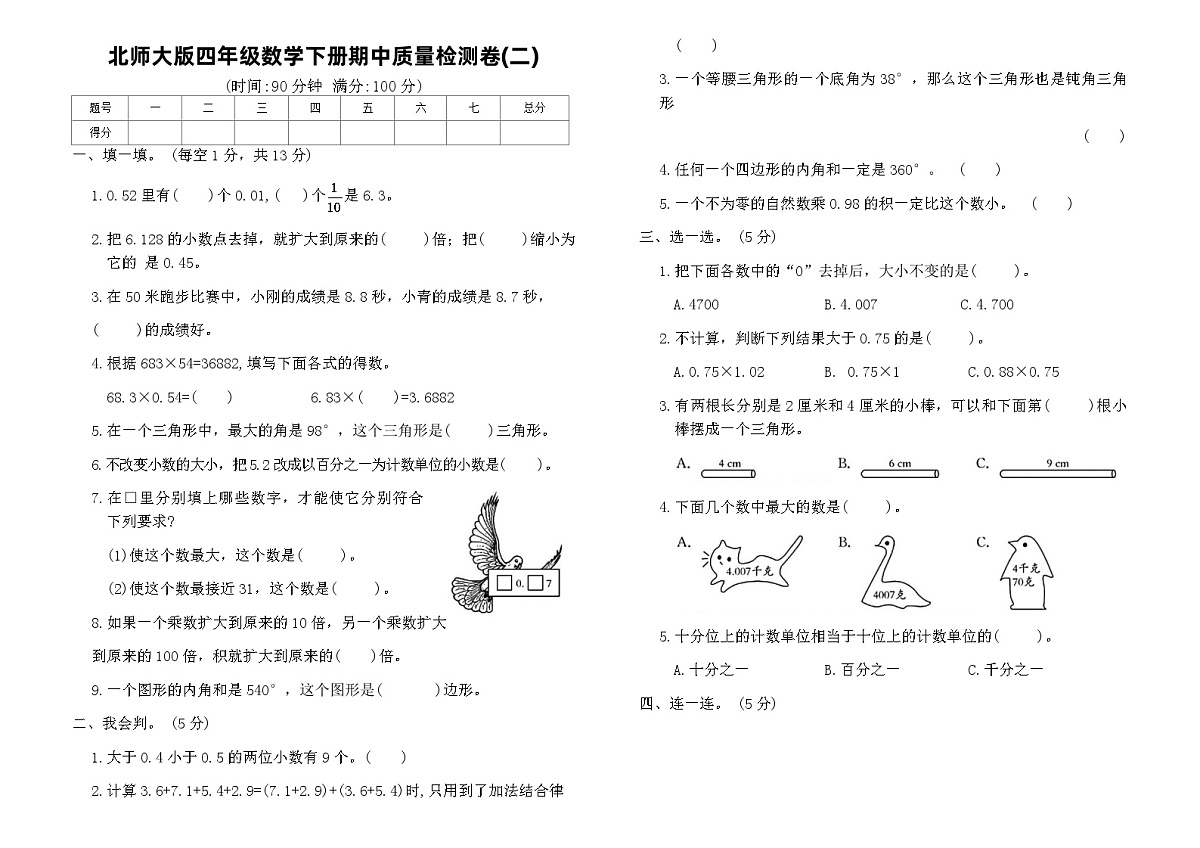 北师大版四年级数学下册期中质量检测卷(二)
(时间:90分钟 满分:100分)
题号 一 二 三 四 五 六 七 总分
得分
一、填一填。(每空1分，共13分)
1.0.52里有( )个0.01,( )个1/10是6.3。
2.把6.128的小数点去掉，就扩大到原来的( )倍；把( )缩小为
它的 是0.45。
3.在50米跑步比赛中，小刚的成绩是8.8秒，小青的成绩是8.7秒，
( )的成绩好。
4.根据683×54=36882,填写下面各式的得数。
68.3×0.54=( ) 6.83×( )=3.6882
5.在一个三角形中，最大的角是98°，这个三角形是( )三角形。
6.不改变小数的大小，把5.2改成以百分之一为计数单位的小数是( )。
7.在□里分别填上哪些数字，才能使它分别符合
下列要求?
(1)使这个数最大，这个数是( )。
(2)使这个数最接近31，这个数是( )。
□0.□7
8.如果一个乘数扩大到原来的10倍，另一个乘数扩大
到原来的100倍，积就扩大到原来的( )倍。
9.一个图形的内角和是540°，这个图形是( )边形。
二、我会判。(5分)
1.大于0.4小于0.5的两位小数有9个。( )
2.计算3.6+7.1+5.4+2.9=(7.1+2.9)+(3.6+5.4)时,只用到了加法结合律
( )
3.一个等腰三角形的一个底角为38°，那么这个三角形也是钝角三角
形
( )
4.任何一个四边形的内角和一定是360°。 ( )
5.一个不为零的自然数乘0.98的积一定比这个数小。 ( )
三、选一选。(5分)
1.把下面各数中的“0”去掉后，大小不变的是( )。
A.4700 B.4.007 C.4.700
2.不计算，判断下列结果大于0.75的是( )。
A.0.75×1.02 B. 0.75×1 C.0.88×0.75
3.有两根长分别是2厘米和4厘米的小棒，可以和下面第( )根小
棒摆成一个三角形。
A. 4 cm B. 6 cm C. 9 cm
4.下面几个数中最大的数是( )。
A. B. C.
4.007千克
4007克
4千克
70克
5.十分位上的计数单位相当于十位上的计数单位的( )。
A.十分之一 B.百分之一 C.千分之一
四、连一连。(5分)